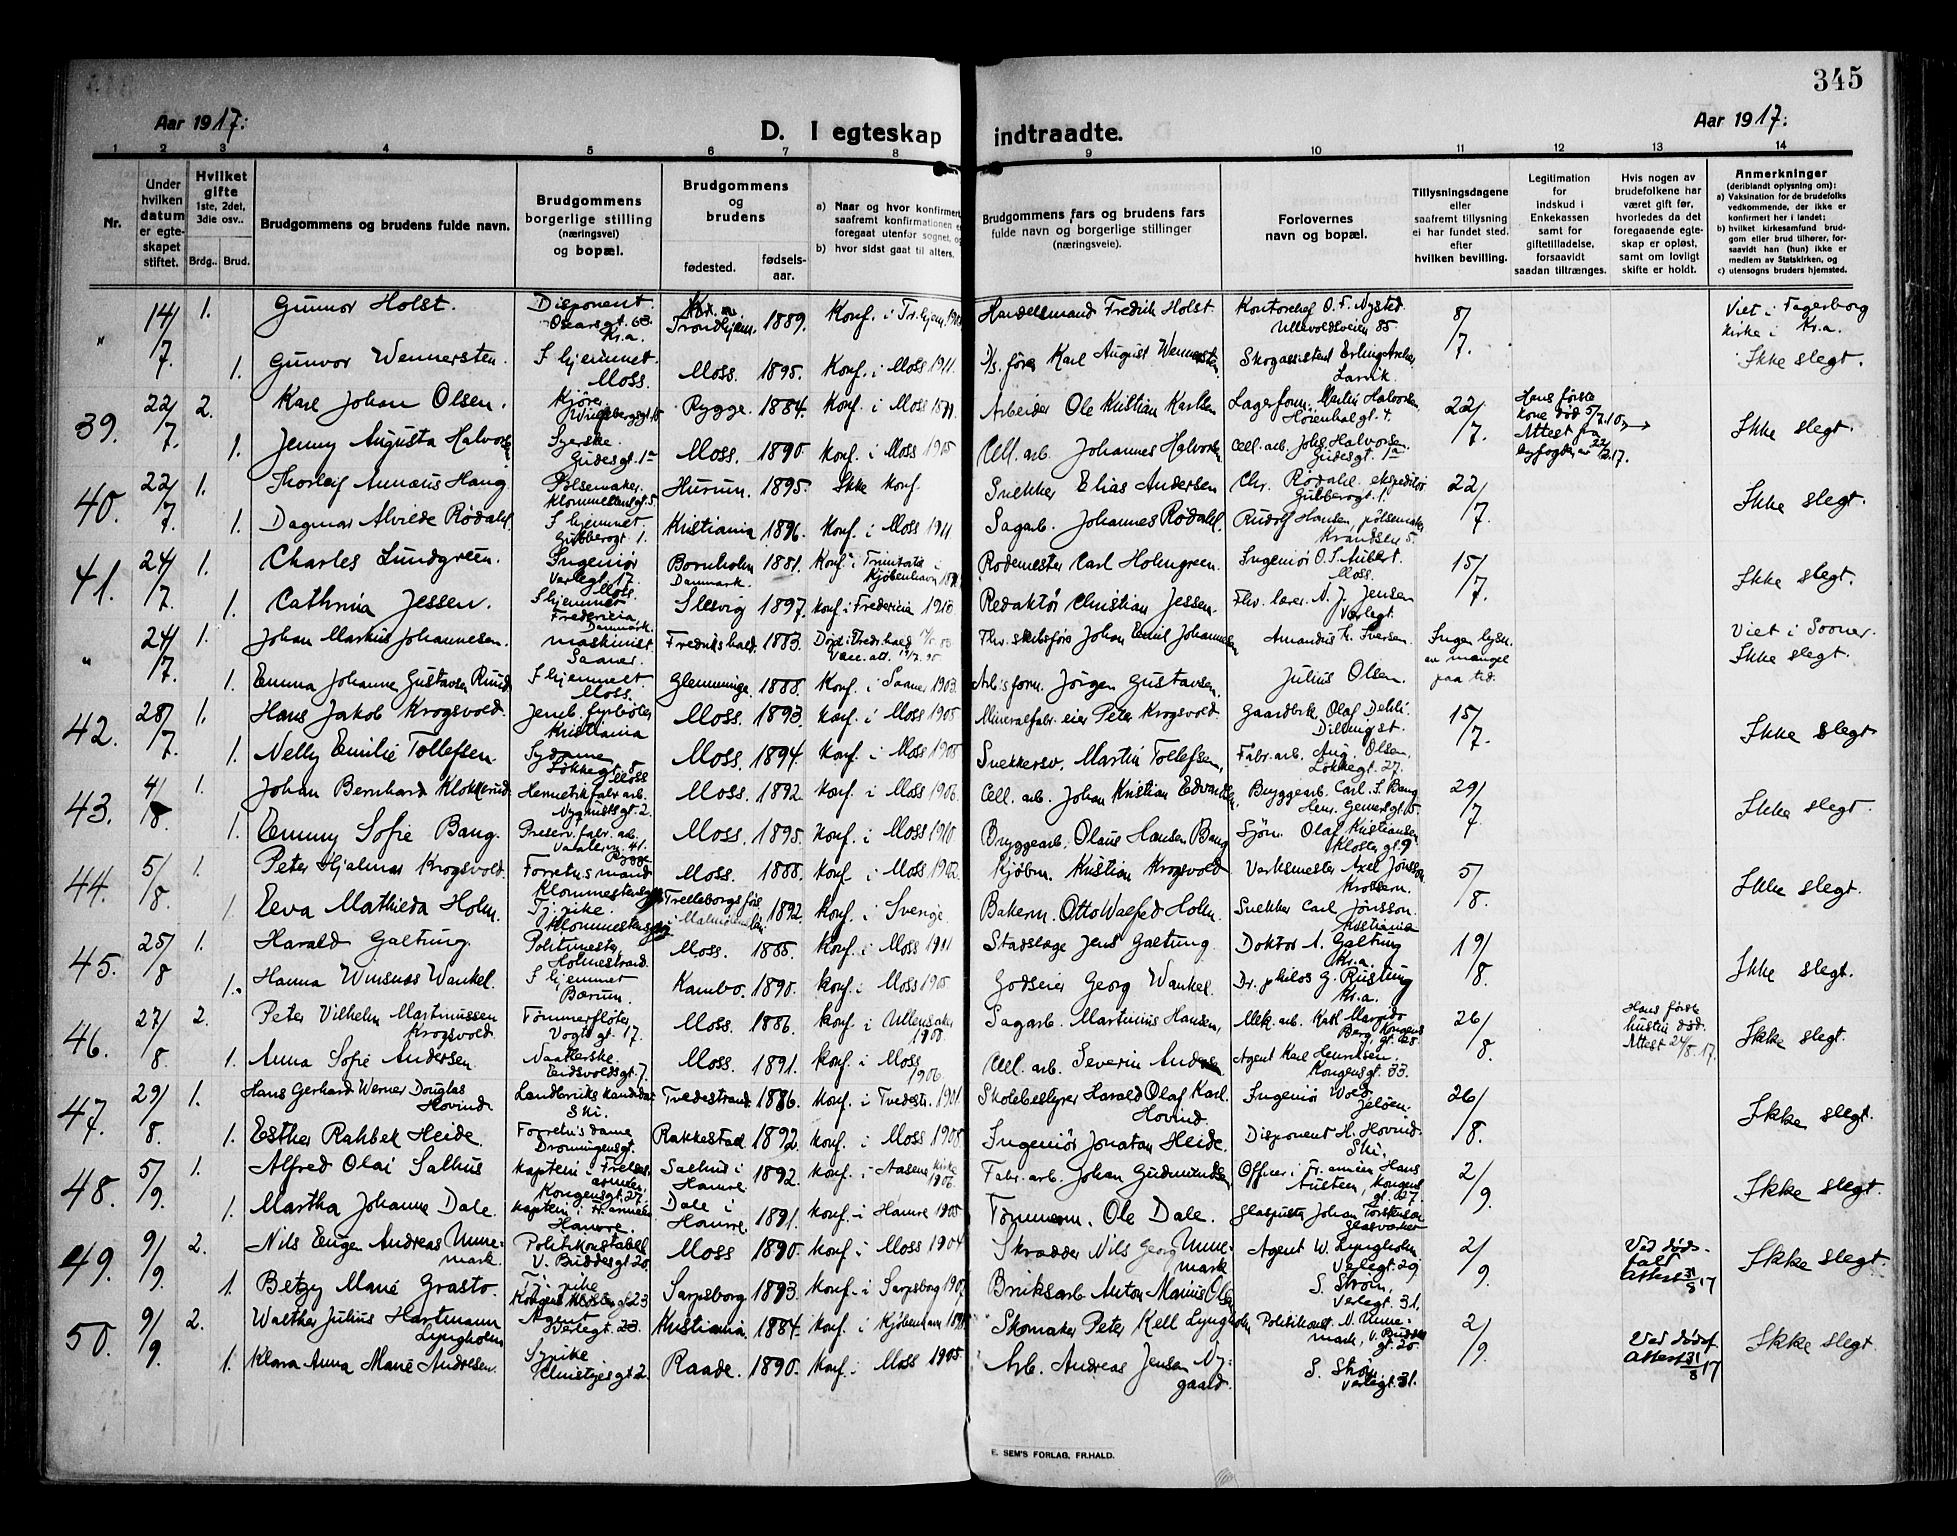 345
Aar 1917:
D. I egteskap indtraadte.
Aar 1917:
1 2 3 4 5 6 7 8 9 10 11 12 13 14
Nr.
Under hvilken datum er egteskapet stiftet.
Hvilket gifte 1ste, 2det, 3die osv..
Brdg.. Brud.
Brudgommens og brudens fulde navn.
Brudgommens borgerlige stilling (næringsvei) og bopæl.
Brudgommens og brudens
fødested.
fødselsaar.
a) Naar og hvor konfirmert,
saafremt konfirmationen
foregaat utenfor sognet, og
b) hvor sidst gaat til alters.
Brudgommens fars og brudens fars
fulde navn og borgerlige stillinger
(næringsveie).
Forlovernes
navn og bopæl.
Tillysningsdagene
eller
saafremt tillysning
ei har fundet sted,
efter
hvilken bevilling.
Legitimation
for
indskud i
Enkekassen
samt for
giftetilladelse,
forsaavidt
saadan tiltrænges.
Hvis nogen av
brudefolkene har
været gift før,
hvorledes da det
foregaaende egte-
skap er opløst,
samt om lovligt
skifte er holdt.
Anmerkninger
(deriblandt oplysning om):
a) Vaksination for de brudefolks
vedkommende, der ikke er
konfirmert her i landet;
b) hvilket kirkesamfund brud-
gom eller brud tilhører, for-
saavidt han (hun) ikke er
medlem av Statskirken, og
c) utensogns bruders hjemsted.
" 14/7 1. Gunnar Holst. Disponent Oscarsgt. 63. Kr.a. Trondhjem. 1889. Konf. i Tr.hjem Handelsmand Fredrik Holst. Kontorchef O. F. Nysted Ullevoldsveien 85 8/7. Viet i Fagerborg kirke i Kr.a.
1. Gunvor Wennersten. I hjemmet. Moss. Moss. 1895. Konf. i Moss 1911. Karl August Wennersten Skogassistent Erling Larvik. Ikke slegt.
39. 22/7 2. Karl Johan Olsen. Kjører Rygge. 1884. Konf. i Moss Arbeider Ole Kristian Karlsen Lagerform. Martin Halvorsen Høienhalgt. 4. 22/7. Hans første kone død 5/7.10. Attest fra byfogden av 22/2.17. Ikke slegt.
1. Jenny Augusta Halvorsen Syerske. Gudesgt. 1a Moss. 1890. Konf. i Moss 1905 Cell. arb. Johannes Halvorsen Cell. arb. Johs. Halvorsen. Gudesgt. 1a
40. 22/7. 1. Thorleif Annæus Haug Pølsemaker. Hurum. 1895. Ikke konf. Snekker Elias Andersen Chr. Rødahl, ekspeditør Gudbergt. 1. 22/7. Ikke slegt.
1. Dagmar Alvilde Rødahl. I hjemmet Gudbergt 1. Kristiania 1896. Konf. i Moss 1911 Sagarb. Johannes Rødahl. Rudolf Hansen, pølsemaker
41. 24/7 1. Charles Lundgreen. Ingeniør Varlegt. 17. Moss. Bornholm Danmark. 1881. Konf. i Trinitatis i Kjøbenhavn Rodemester Carl Holmgreen. Ingeniør O. S. Aubert. Moss. 15/7. Ikke slegt.
1. Cathrina Jessen. I hjemmet Fredericia, Danmark. Slesvig 1897. Konf. i Fredericia 1913 Redaktør Christian Jessen. Fhv. lærer N. J. Jensen Varlegt.
" 24/7. 1. Johan Markus Johannesen. Maskinist Saaner. Fredrikshald. 1883. Fhv. skibsfører Johan Emil Johannesen Amandus K. Iversen. Ingen lysn. av mangel paa tid. Viet i Sooner. Ikke slegt.
1. Emma Johanne Gustavsen Ruud I hjemmet. Moss. Glemminge. 1888. Konf. i Saaner 1903. Arb.form. Jørgen Gustavsen. Julius Olsen.
42. 28/7. 1. Hans Jakob Krogsvold. Jernb. fyrbøter Kristiania Moss. 1893. Konf. i Moss 1908 Mineralfabr. eier Peter Krogsvold. Gaardbr. Olaf Dehli. Dillingst. 15/7. Ikke slegt.
1. Nelly Emilie Tollefsen. Sydame Løkkegt 5 Moss Moss. 1894. Konf. i Moss 1908 Snekkersv. Martin Tollefsen, Fabr. arb. Aug. Olsen. Løkkegt. 27.
43. 4/8. 1. Johan Bernhard Klokkerud. Hermetikfabr arb. Nyquistsgt 2. Moss. 1892. Konf. i Moss 1906. Cell. arb. Johan Kristian Edvardsen, Bryggearb. Carl. S. Bang Henr. Gernersgt 15. 29/7. Ikke slegt.
1. Emmy Sofie Bang. Preserv. fabr. arb. Vaalerv. 41. Rygge Moss. 1895. Konf. i Moss 1910. Bryggearb. Olaus Hansen Bang Sjøm. Olaf Kristiansen Klostergt 9
44. 5/8. 1. Peter Hjalmar Krogsvold. Forretn.smand Moss. 1888. Konf. i Moss 1902. Kjøbm. Kristian Krogsvold Verksmester Axel Jonsson Krossern. 5/8. Ikke slegt.
1. Eeva Mathilda Holm. Tj.pike. Trelleborgs 1892. Konf. i Sverige. Bakerm. Otto Walfred Holm. Snekker Carl Jonsson. Kristiania
45. 25/8 1. Harald Galtung. Politimester Holmestrand. Moss. 1885. Konf. i Moss Stadslæge Jens Galtung. Doktor A. Galtung Kr.a. 19/8. Ikke slegt.
1. Hanna Winsnes Wankel. I hjemmet Bærum. Kambo. 1890. Konf. i Moss 1905 Godseier Georg Wankel. Dr. philos G. Rustung Kr.a.
46. 27/8 2. Peter Vilhelm Martinussen Krogsvold. Tømmerfløter Vogtsgt. 17. Moss. 1886. Konf. i Ullensaker 1900. Sagarb. Martinius Hansen, Mek. arb. Karl Berg, Kongensgt. 26/8. Hans første hustru død. Attest 24/8.17. Ikke slegt.
1. Anna Sofie Andersen. Vaskerske. Eidsvoldsgt. 7. Moss. 1891. Konf. i Moss 1906. Cell. arb. Severin Andersen Agent Karl Henriksen. Kongensgt. 33.
47. 29/8. 1. Hans Gerhard Werner Douglas Hovind. Landbrukskandidat Ski. Tvedestrand. 1886. Konf. i Tvedestr. 1901. Skolebestyrer Harald Olaf Karl Hovind. Ingeniør Wold Jeløen. 26/8. Ikke slegt.
1. Esther Rahbek Heide. Forretn.s dame Dronningensgt. Rakkestad 1892. Konf. i Moss 1908 Ingeniør Jonatan Heide. Disponent H. Hovind Ski.
48. 5/9. 1. Alfred Olai Salhus Kaptein i Frelsesarmeen, Kongensgt. 27. Salhus i Hamre 1892. Konf. i Aasene kirke 1906. Fabr. arb. Johan Gudmundsen Officer i Fr. armeen Hans Austeen, Kongensgt. 27. 2/9. Ikke slegt.
1. Martha Johanne Dale. Kaptein i Fr. armeen Hamre. Dale i Hamre 1891. Konf. i Hamre 1905 Tømmerm. Ole Dale. Glaspuster Johan Torstensen Glasverket
49. 9/9. 2. Nils Eugen Andreas Unnemark. Politikonstabel V. Buddesgt 20. Moss 1890. Konf. i Moss 1904 Skrædder Nils Georg Unnemark Agent W. Lyngholm Varlegt. 29. 2/9. Ved dødsfald Attest 31/8 17 Ikke slegt.
1. Betzy Marie Grasto. Tj.pike Kongensgt 23 Sarpsborg 1893. Konf. i Sarpsborg 1907. Bruksarb Anton Marius Olsen S. Strøm, Varlegt. 31.
50. 9/9. 2. Walther Julius Hartmann Lyngholm Agent Varlegt. 23. Kristiania 1884. Konf. i Kjøbenhavn Skomaker Peter Kell Lyngholm Politikonst. N. Unnemark, V. Buddesgt. 20. 2/9. Ved dødsf. Attest 31/8 17 Ikke slegt
1. Klara Anna Marie Andresen. Sypike Raade. 1890. Konf. i Moss 1905. Arb. Andreas Jensen Nygaard. S. Strøm Varlegt. 31.
E. SEM'S FORLAG, FR.HALD.